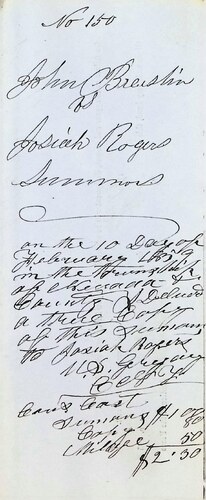 No 150
John C Breislin
vs
Josiah Rogers
Summons
on the 10 Day of
February 1859
in the Township
of Nevada &
County I Delivd
a true Copy
of this Summons
to Josiah Rogers
Cons Cost
Summons $1 00
Copy 50
Milage 50
$2.50